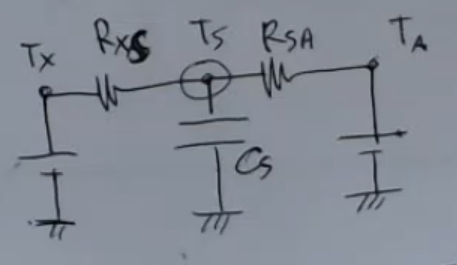 Tx Rxs Ts RSA TA
Cs